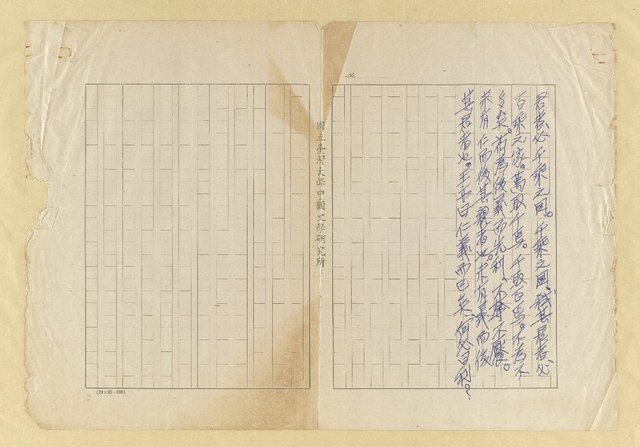 君者必千乘之國。千乘之國。弒其君者必
百乘之家。萬取千焉。千取百焉。不為不
多矣。苟為後義而先利，不奪不饜。
未有仁而後其親者也。未有義而後
其君者也。王亦曰仁義而已矣，何必曰利？
國立臺灣大學中國文學研究所